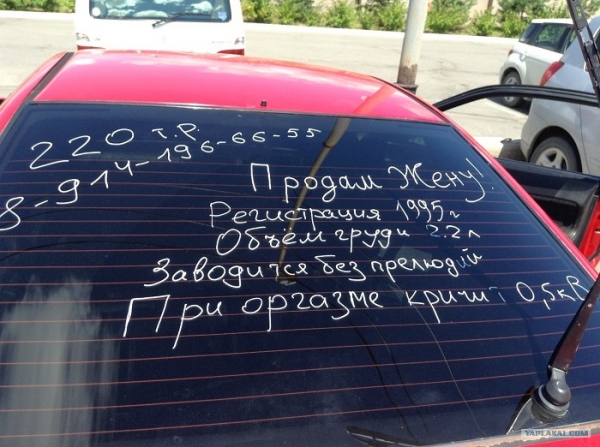 220 т.р.
8-914-196-66-55
Продам Жену!
Регистрация 1995г
Объём груди 2.2л
Заводится без прелюдий
При оргазме кричит 0,5кR
YAPLAKAL.COM